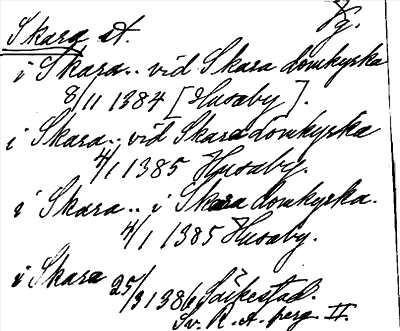 Skara st. Vg.
i Skara.. vid Skara domkyrka
8/11 1384 [Husaby].
i Skara.. vid Skara domkyrka
4/1 1385 Husaby.
i Skara.. i Skara domkyrka.
4/1 1385 Husaby.
i Skara 25/3 1386
Sv. R. A. perg. II.